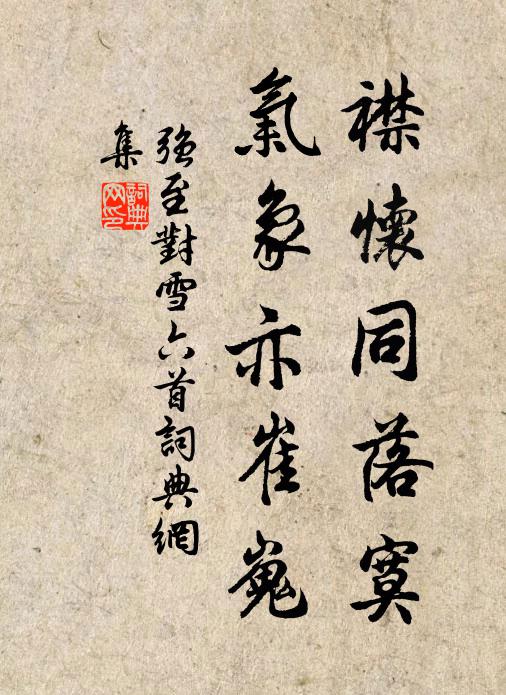 襟懷同落寞
氣象亦崔嵬
强至對雪六首詞典網
集
詞典
网印